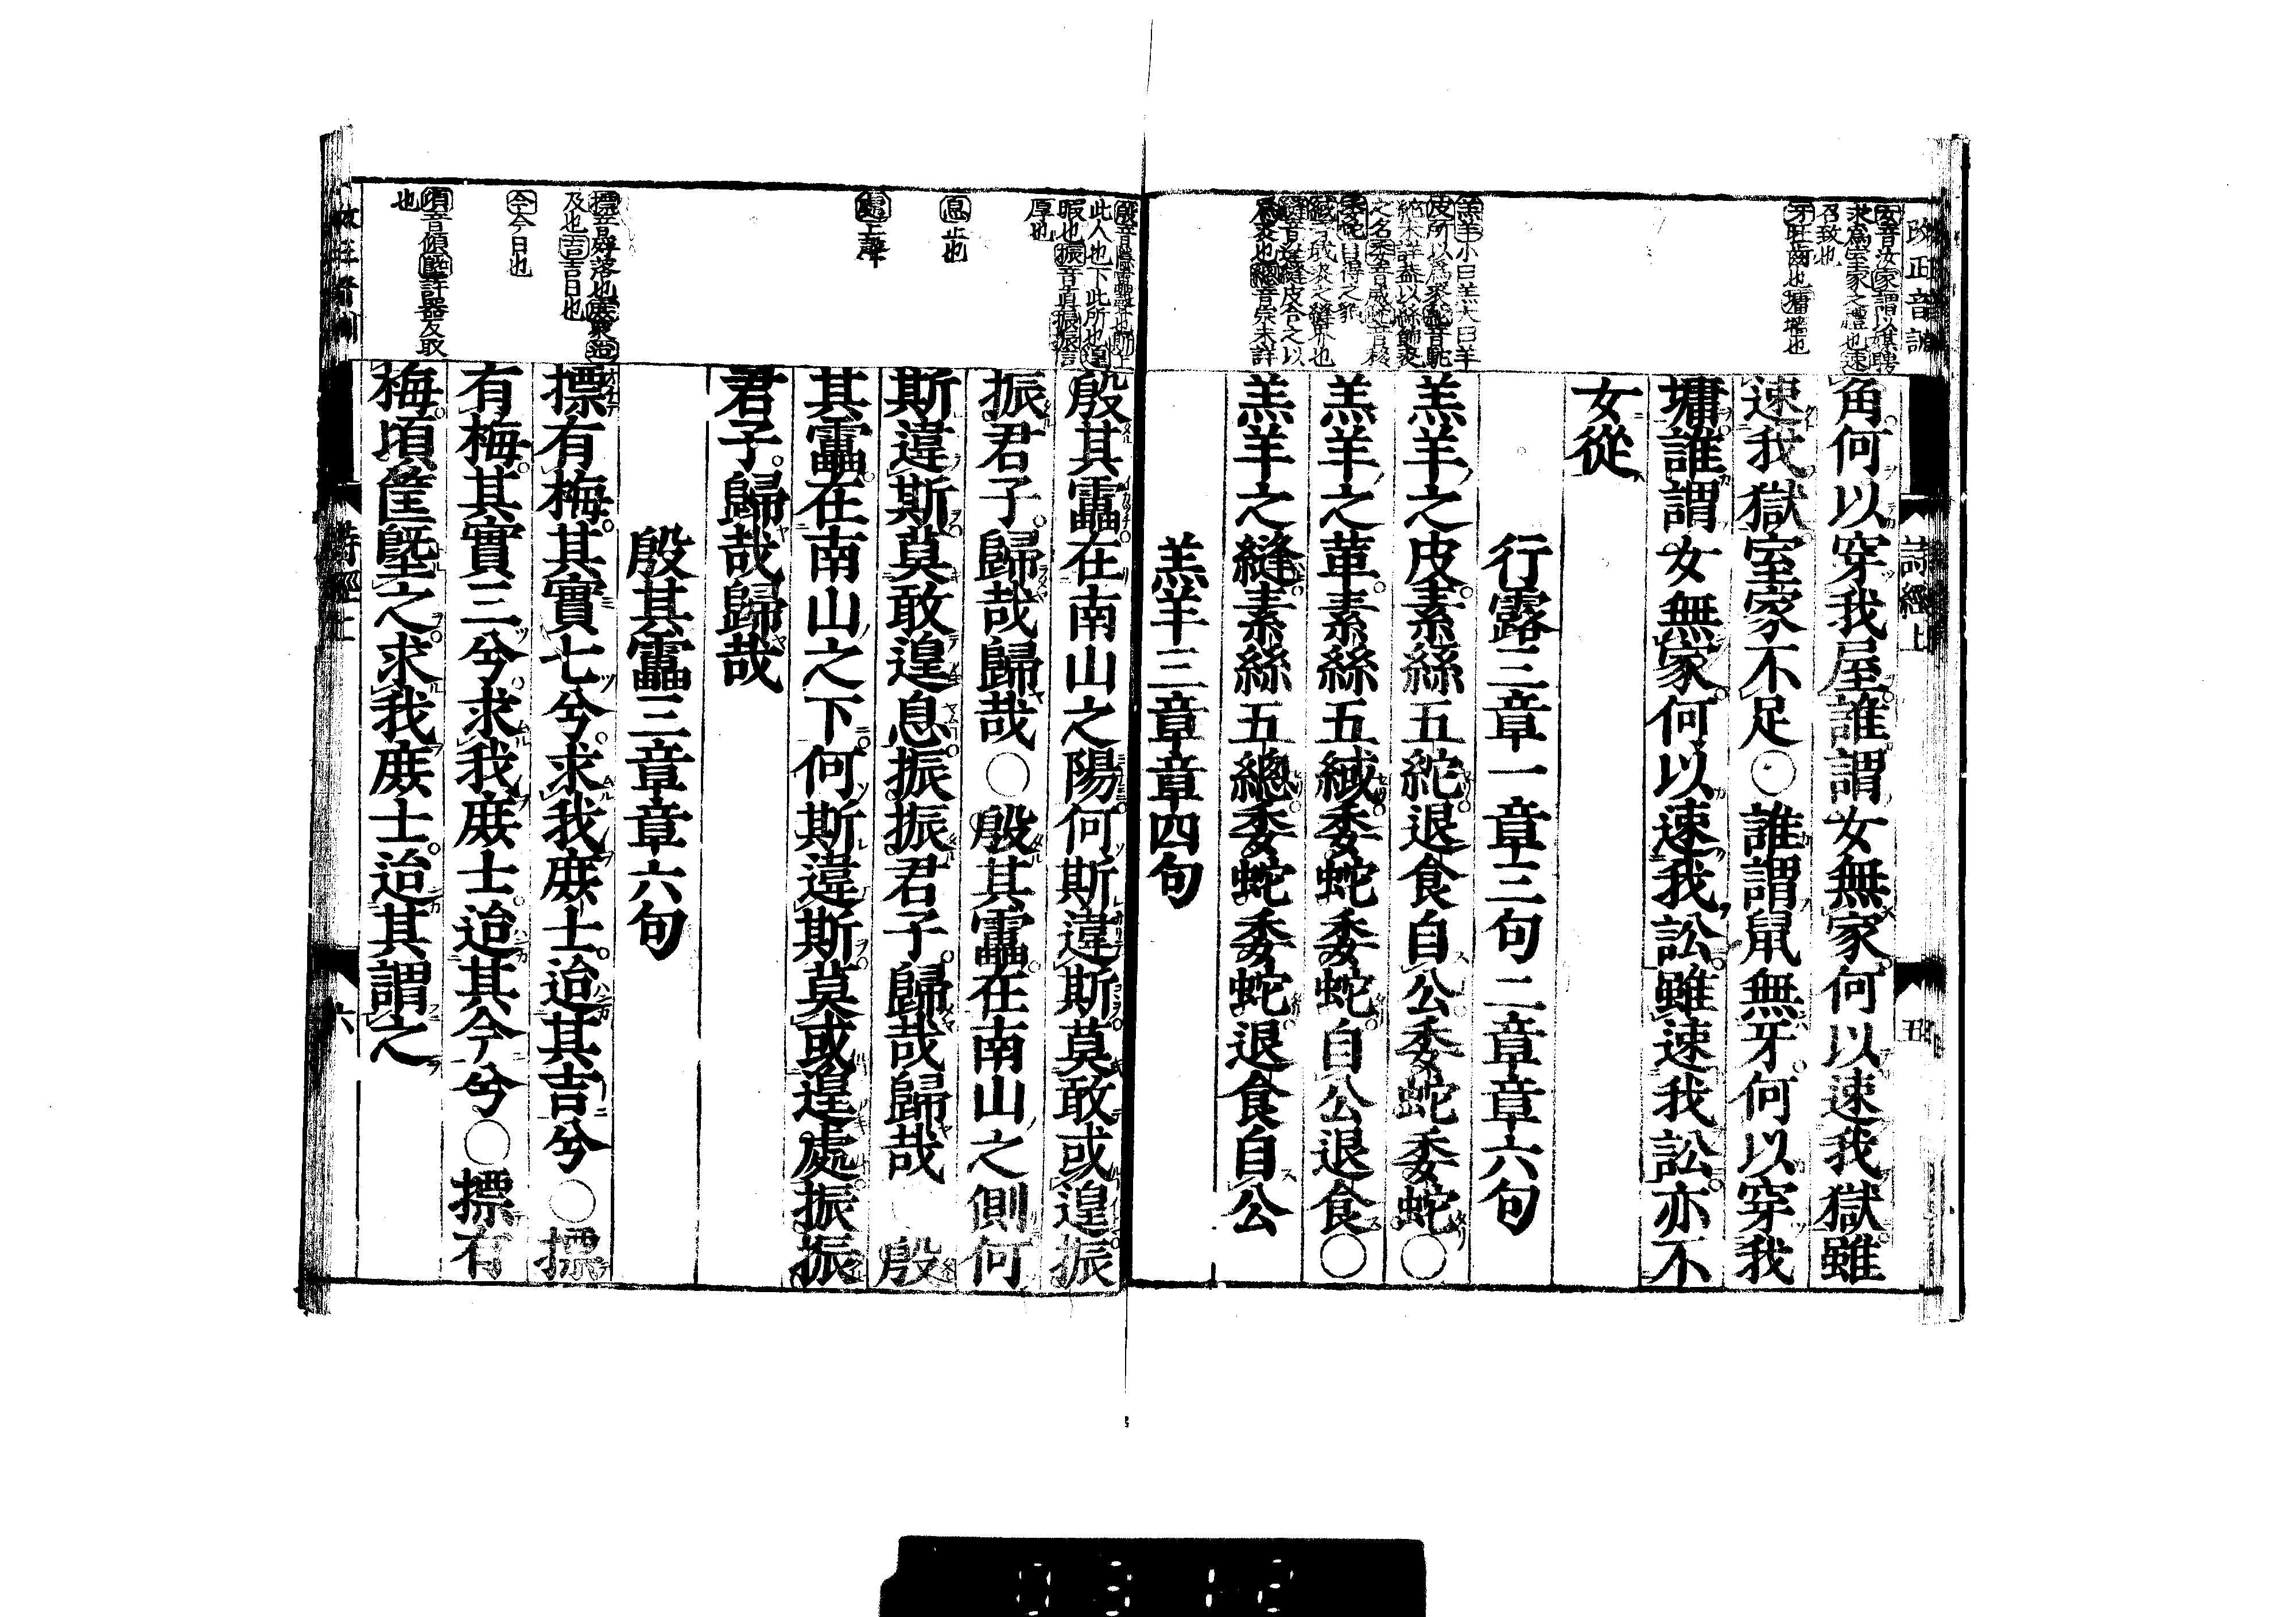 改正音訓
詩經上
五
女音汝家謂以媒聘
求爲室家之禮也速
召致也
牙牡齒也墉墻也
羔羊小曰羔大曰羊
皮所以爲裘紽音駝
紽未詳蓋以絲飾裘
之名委音威蛇音移
委蛇自得之貌
緎音域裘之縫界也
縫音逢縫皮合之以
爲裘也總音宗未詳
角何以穿我屋誰謂女無家何以速我獄雖
速我獄室家不足〇誰謂鼠無牙何以穿我
墉誰謂女無家何以速我訟雖速我訟亦不
女從
行露三章一章三句二章章六句
羔羊之皮素絲五紽退食自公委蛇委蛇〇
羔羊之革素絲五緎委蛇委蛇自公退食〇
羔羊之縫素絲五總委蛇委蛇退食自公
羔羊三章章四句
殷音隱靁聲也斯上
此人也下此所也遑
暇也振音眞振振信
厚也
息止也
處上聲
摽音殍落也庶衆迨
及也吉吉日也
今今日也
頃音傾墍許器反取
也
殷其靁在南山之陽何斯違斯莫敢或遑振
振君子歸哉歸哉〇殷其靁在南山之側何
斯違斯莫敢遑息振振君子歸哉歸哉〇殷
其靁在南山之下何斯違斯莫或遑處振振
君子歸哉歸哉
殷其靁三章章六句
摽有梅其實七兮求我庶士迨其吉兮〇摽
有梅其實三兮求我庶士迨其今兮〇摽有
梅頃筐墍之求我庶士迨其謂之
詩經上
六